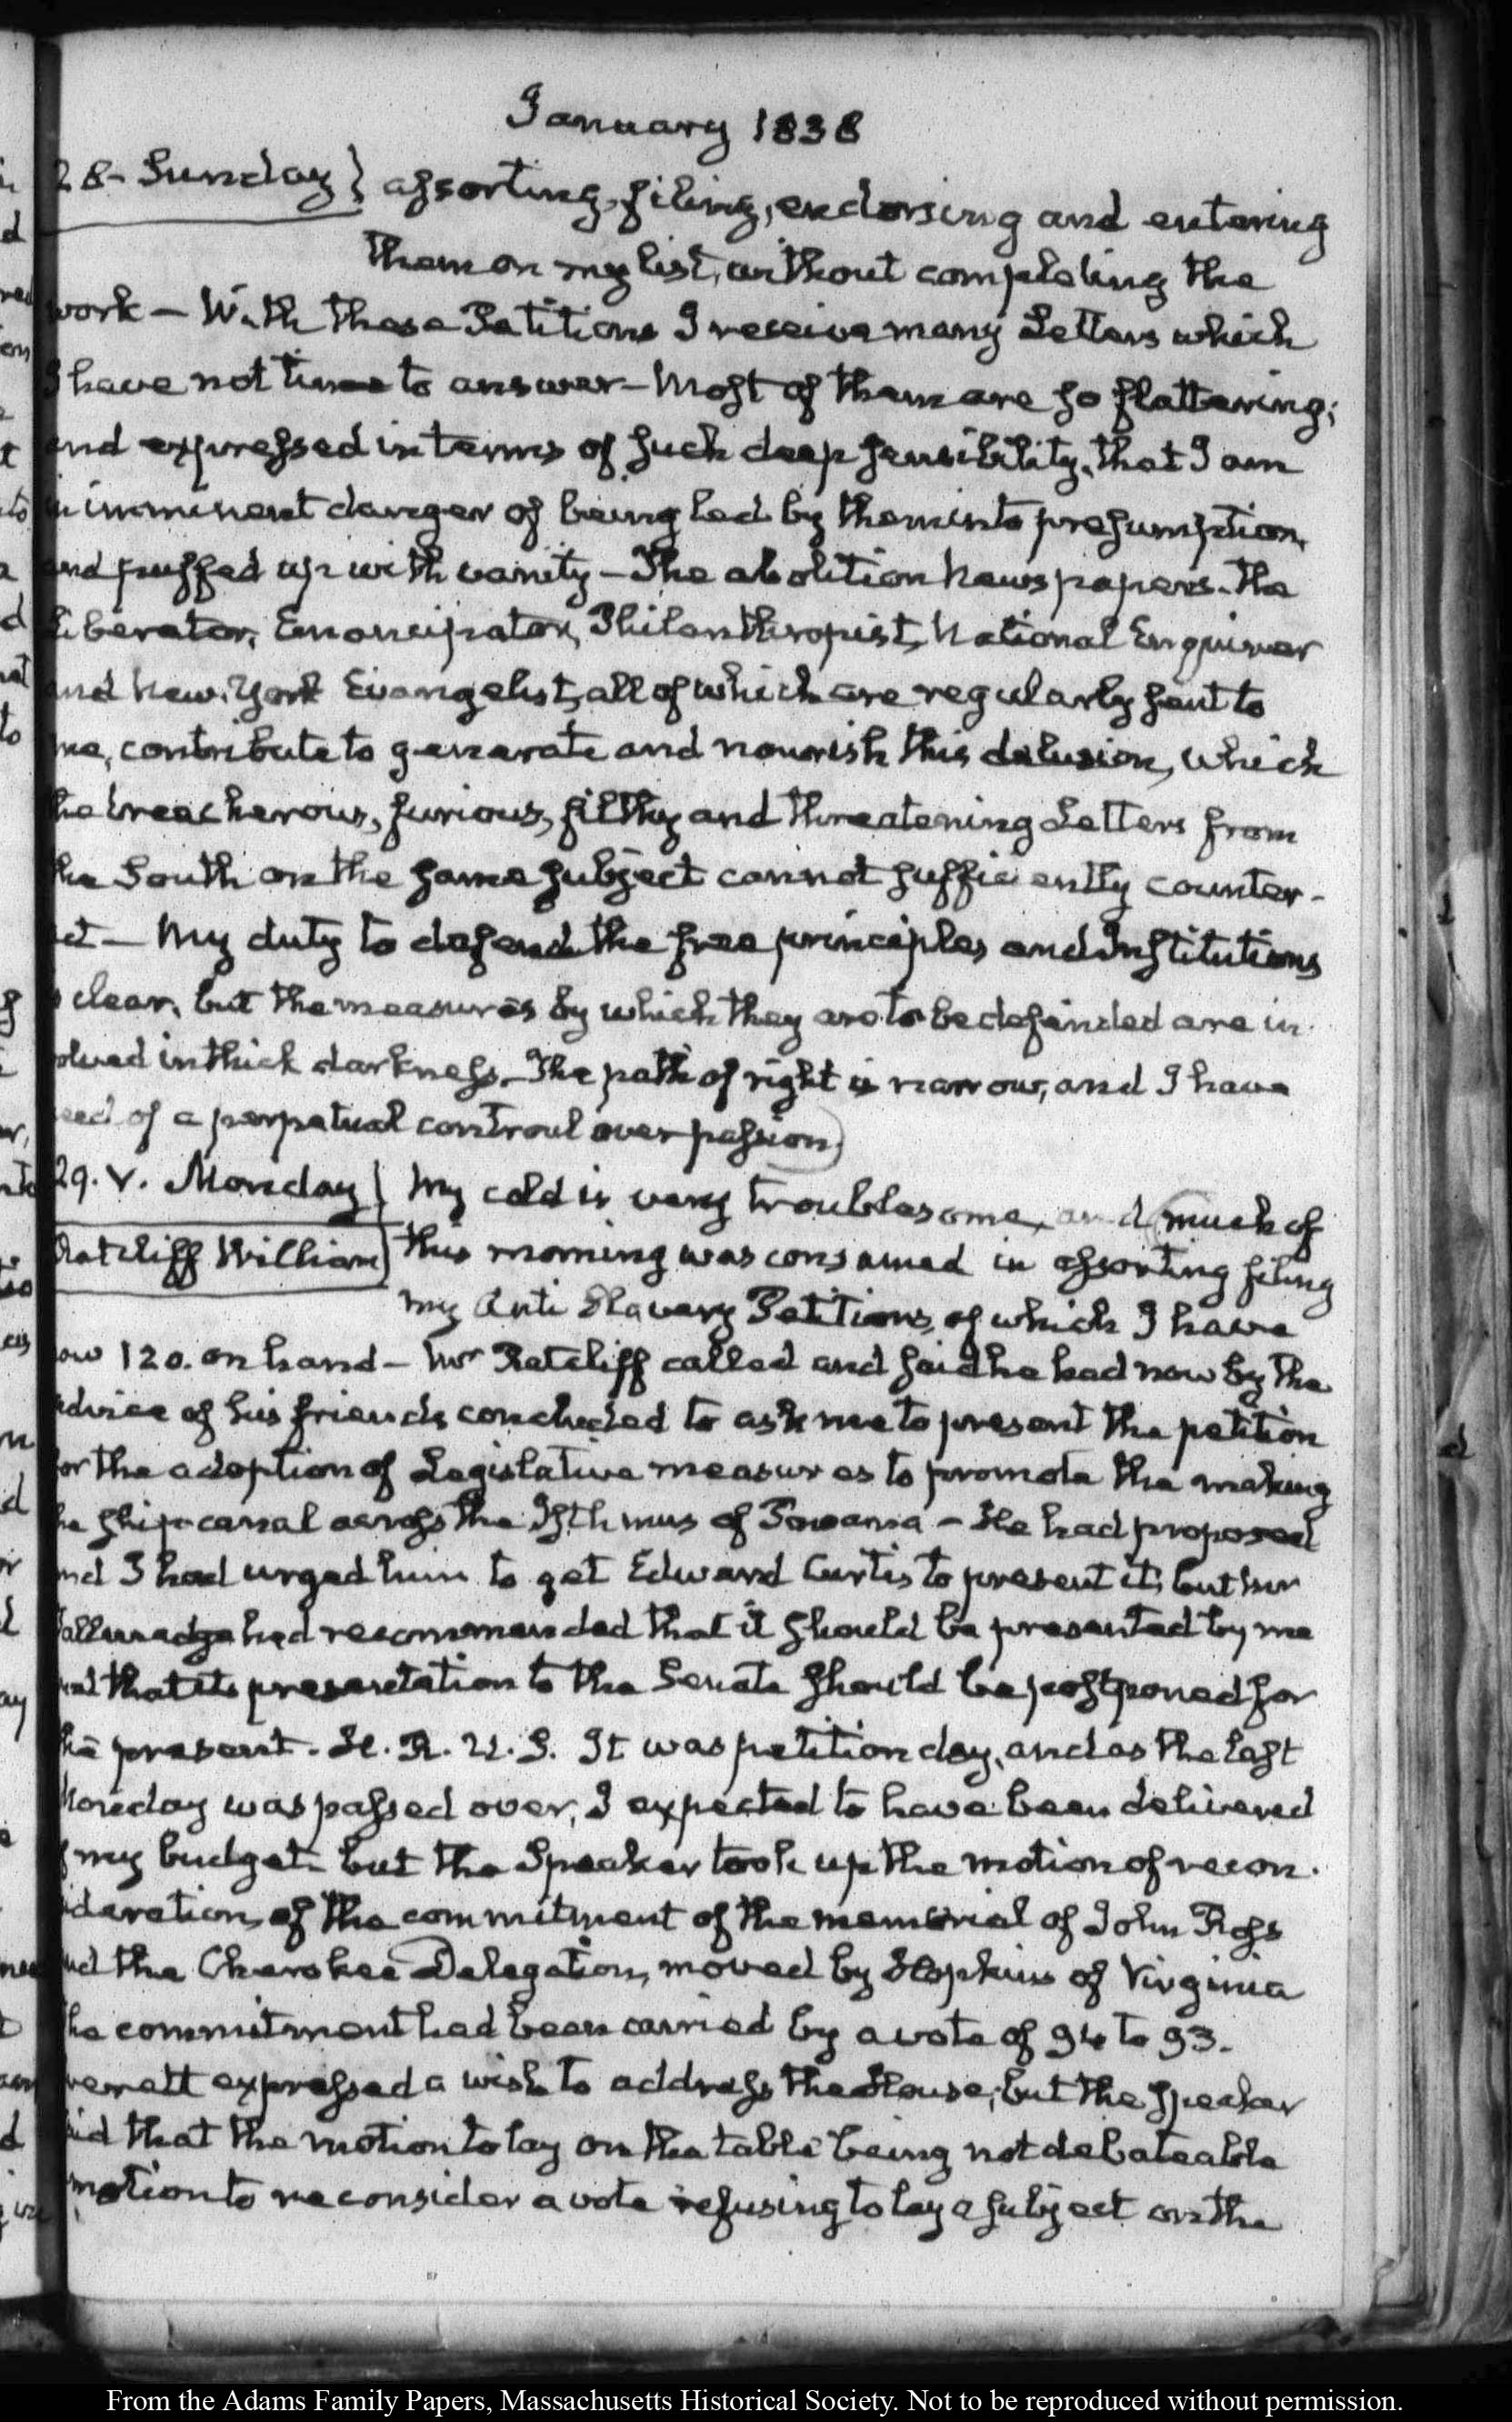 January 1838
28- Sunday} assorting, filing, endorsing and entering
them on my list, without completing the
work — With these Petitions I receive many Letters which
I have not time to answer — Most of them are so flattering,
and expressed in terms of such deep sensibility, that I am
in imminent danger of being led by them into presumption,
and puffed up with vanity — The abolition Newspapers. The
Liberator, Emancipator, Philanthropist, National Enquirer
and New-York Evangelist, all of which are regularly sent to
me, contribute to generate and nourish this delusion, which
the treacherous, furious, filthy and threatening Letters from
the South on the same subject cannot sufficiently counter-
act — My duty to defend the free principles and Institutions
is clear, but the measures by which they are to be defended are in-
volved in thick darkness. The path of right is narrow, and I have
need of a perpetual controul over passion)
29. V. Monday} My cold is very troublesome, and (much of
Ratcliff William] this morning was consumed in assorting filing
my Anti Slavery Petitions, of which I have
now 120. on hand — Mr Ratcliff called and said he had now by the
advice of his friends concluded to ask me to present the petition
for the adoption of Legislative measures to promote the making
the ship-canal across the Isthmus of Panama — He had proposed
and I had urged him to get Edward Curtis to present it, but Mr
Tallmadge had recommended that it should be presented by me
and that its presentation to the Senate should be postponed for
the present. H. R. U. S. It was petition day, and as the last
Monday was passed over, I expected to have been delivered
of my budget. but the Speaker took up the motion of recon-
sideration, of the commitment of the memorial of John Ross
and the Cherokee Delegation, moved by Hopkins of Virginia
The commitment had been carried by a vote of 94 to 93.
Everett expressed a wish to address the House, but the Speaker
said that the motion to lay on the table being not debateable
motion to reconsider a vote refusing to lay a subject on the
From the Adams Family Papers, Massachusetts Historical Society. Not to be reproduced without permission.